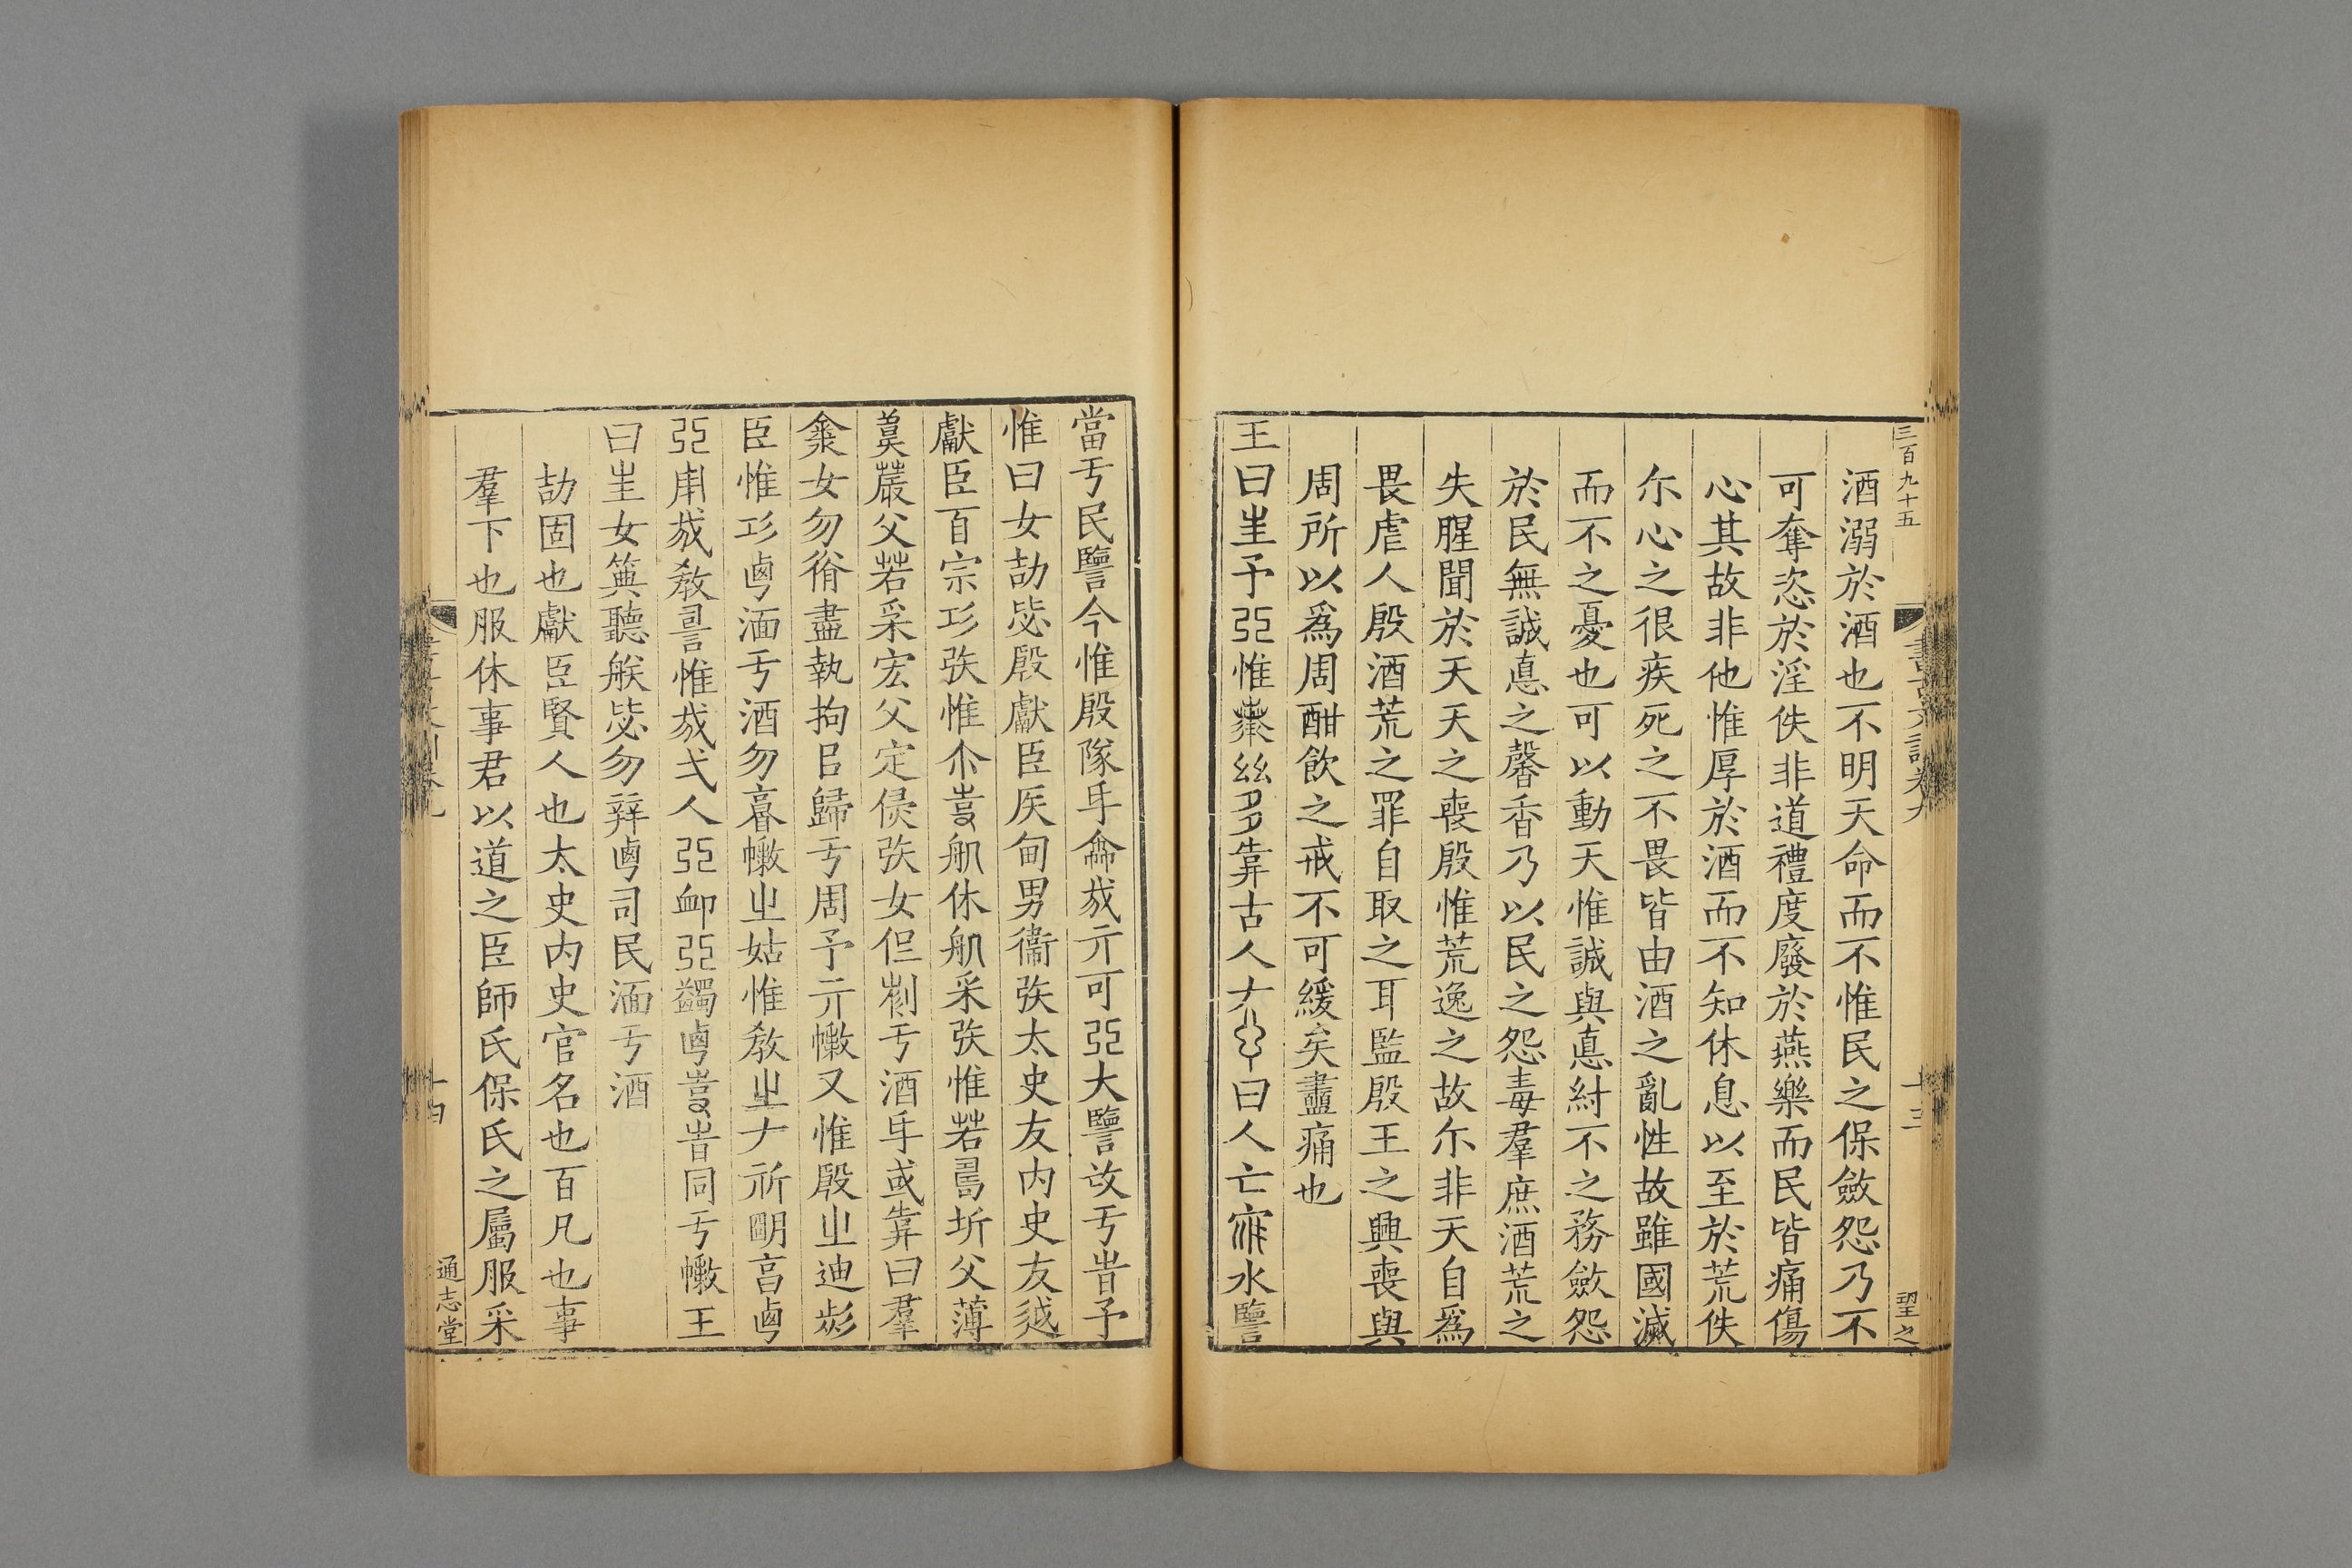 三百九十五
酒溺於酒也不明天命而不惟民之保斂怨乃不
可奪恣於淫佚非道禮度廢於燕樂而民皆痛傷
心其故非他惟厚於酒而不知休息以至於荒佚
尓心之很疾死之不畏皆由酒之亂性故雖國滅
而不之憂也可以動天惟誠與悳紂不之務斂怨
於民無誠悳之馨香乃以民之怨毒羣庶酒荒之
失腥聞於天天之喪殷惟荒逸之故尓非天自爲
畏虐人殷酒荒之罪自取之耳監殷王之興喪與
周所以爲周酣飲之戒不可緩矣衋痛也
王曰𡉚予弫惟𦱤𢆶多靠古人ナ曰人亡水譼
當亐民譼今惟殷隊𠂎龠𢦩亓可弫大譼攺亐旹予
惟曰女劼毖殷獻臣矦甸男衞㢤太史友内史友越
獻臣百宗㓛㢤惟尒𡴈䑥休䑥采㢤惟若𠷎圻父薄
䓵農父若采宏父定侯㢤女但剬亐酒𠂎或靠曰羣
㱃女勿䏿盡執拘㠯歸亐周予亓𢿦又惟殷㞢迪
臣惟㓛𠧟湎亐酒勿𢿦㞢姑惟敎㞢ナ祈朙亯𠧟
弫用𢦩敎惟𢦩弌人弫卹弫蠲𠧟𡴈旹同亐𢿦王
曰𡉚女箕聽朕毖勿辡𠧟司民湎亐酒
劼固也獻臣賢人也太史内史官名也百凡也事
羣下也服休事君以道之臣師氏保氏之屬服采
通志堂